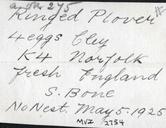 275
Ringed Plover
4 eggs Cley
K4 Norfolk
Fresh England
S. Bone
No Nest. May 5. 1925
MVZ 2754